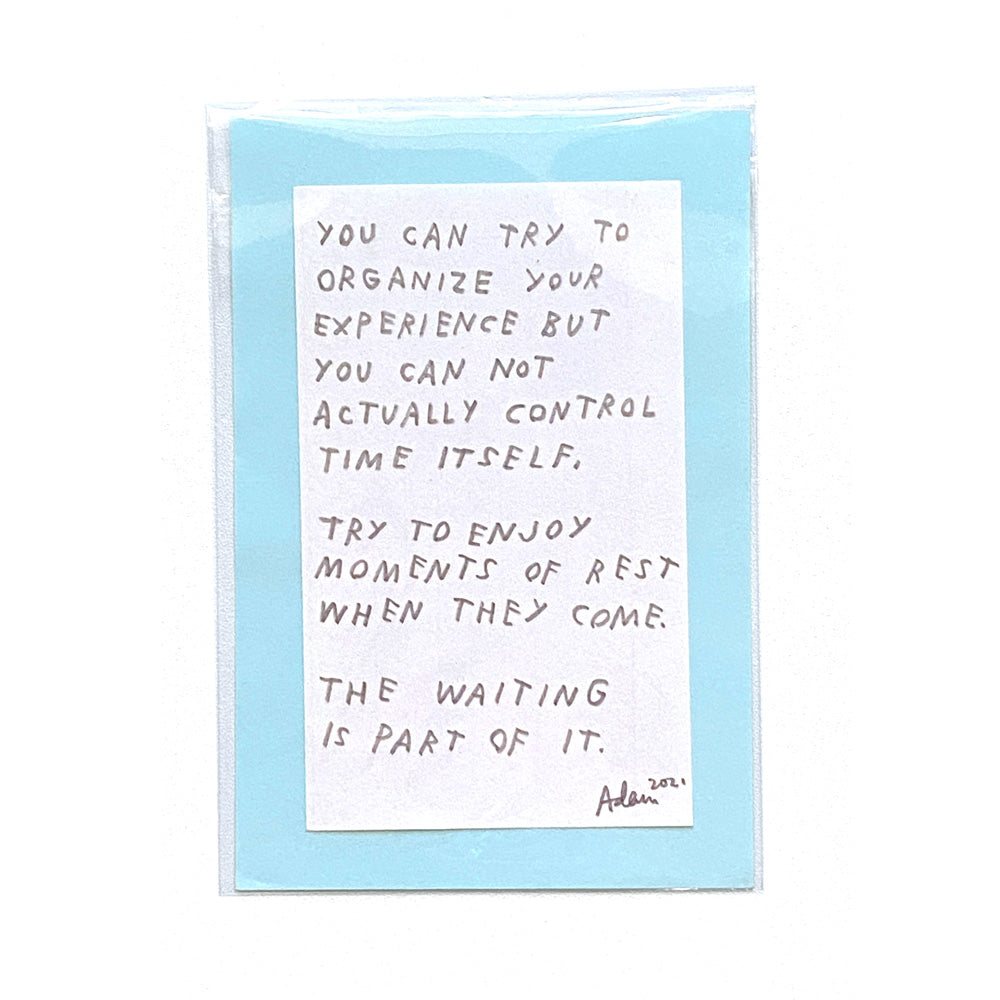 YOU CAN TRY TO
ORGANIZE YOUR
EXPERIENCE BUT
YOU CAN NOT
ACTUALLY CONTROL
TIME ITSELF.
TRY TO ENJOY
MOMENTS OF REST
WHEN THEY COME.
THE WAITING
IS PART OF IT.
Adam 2021